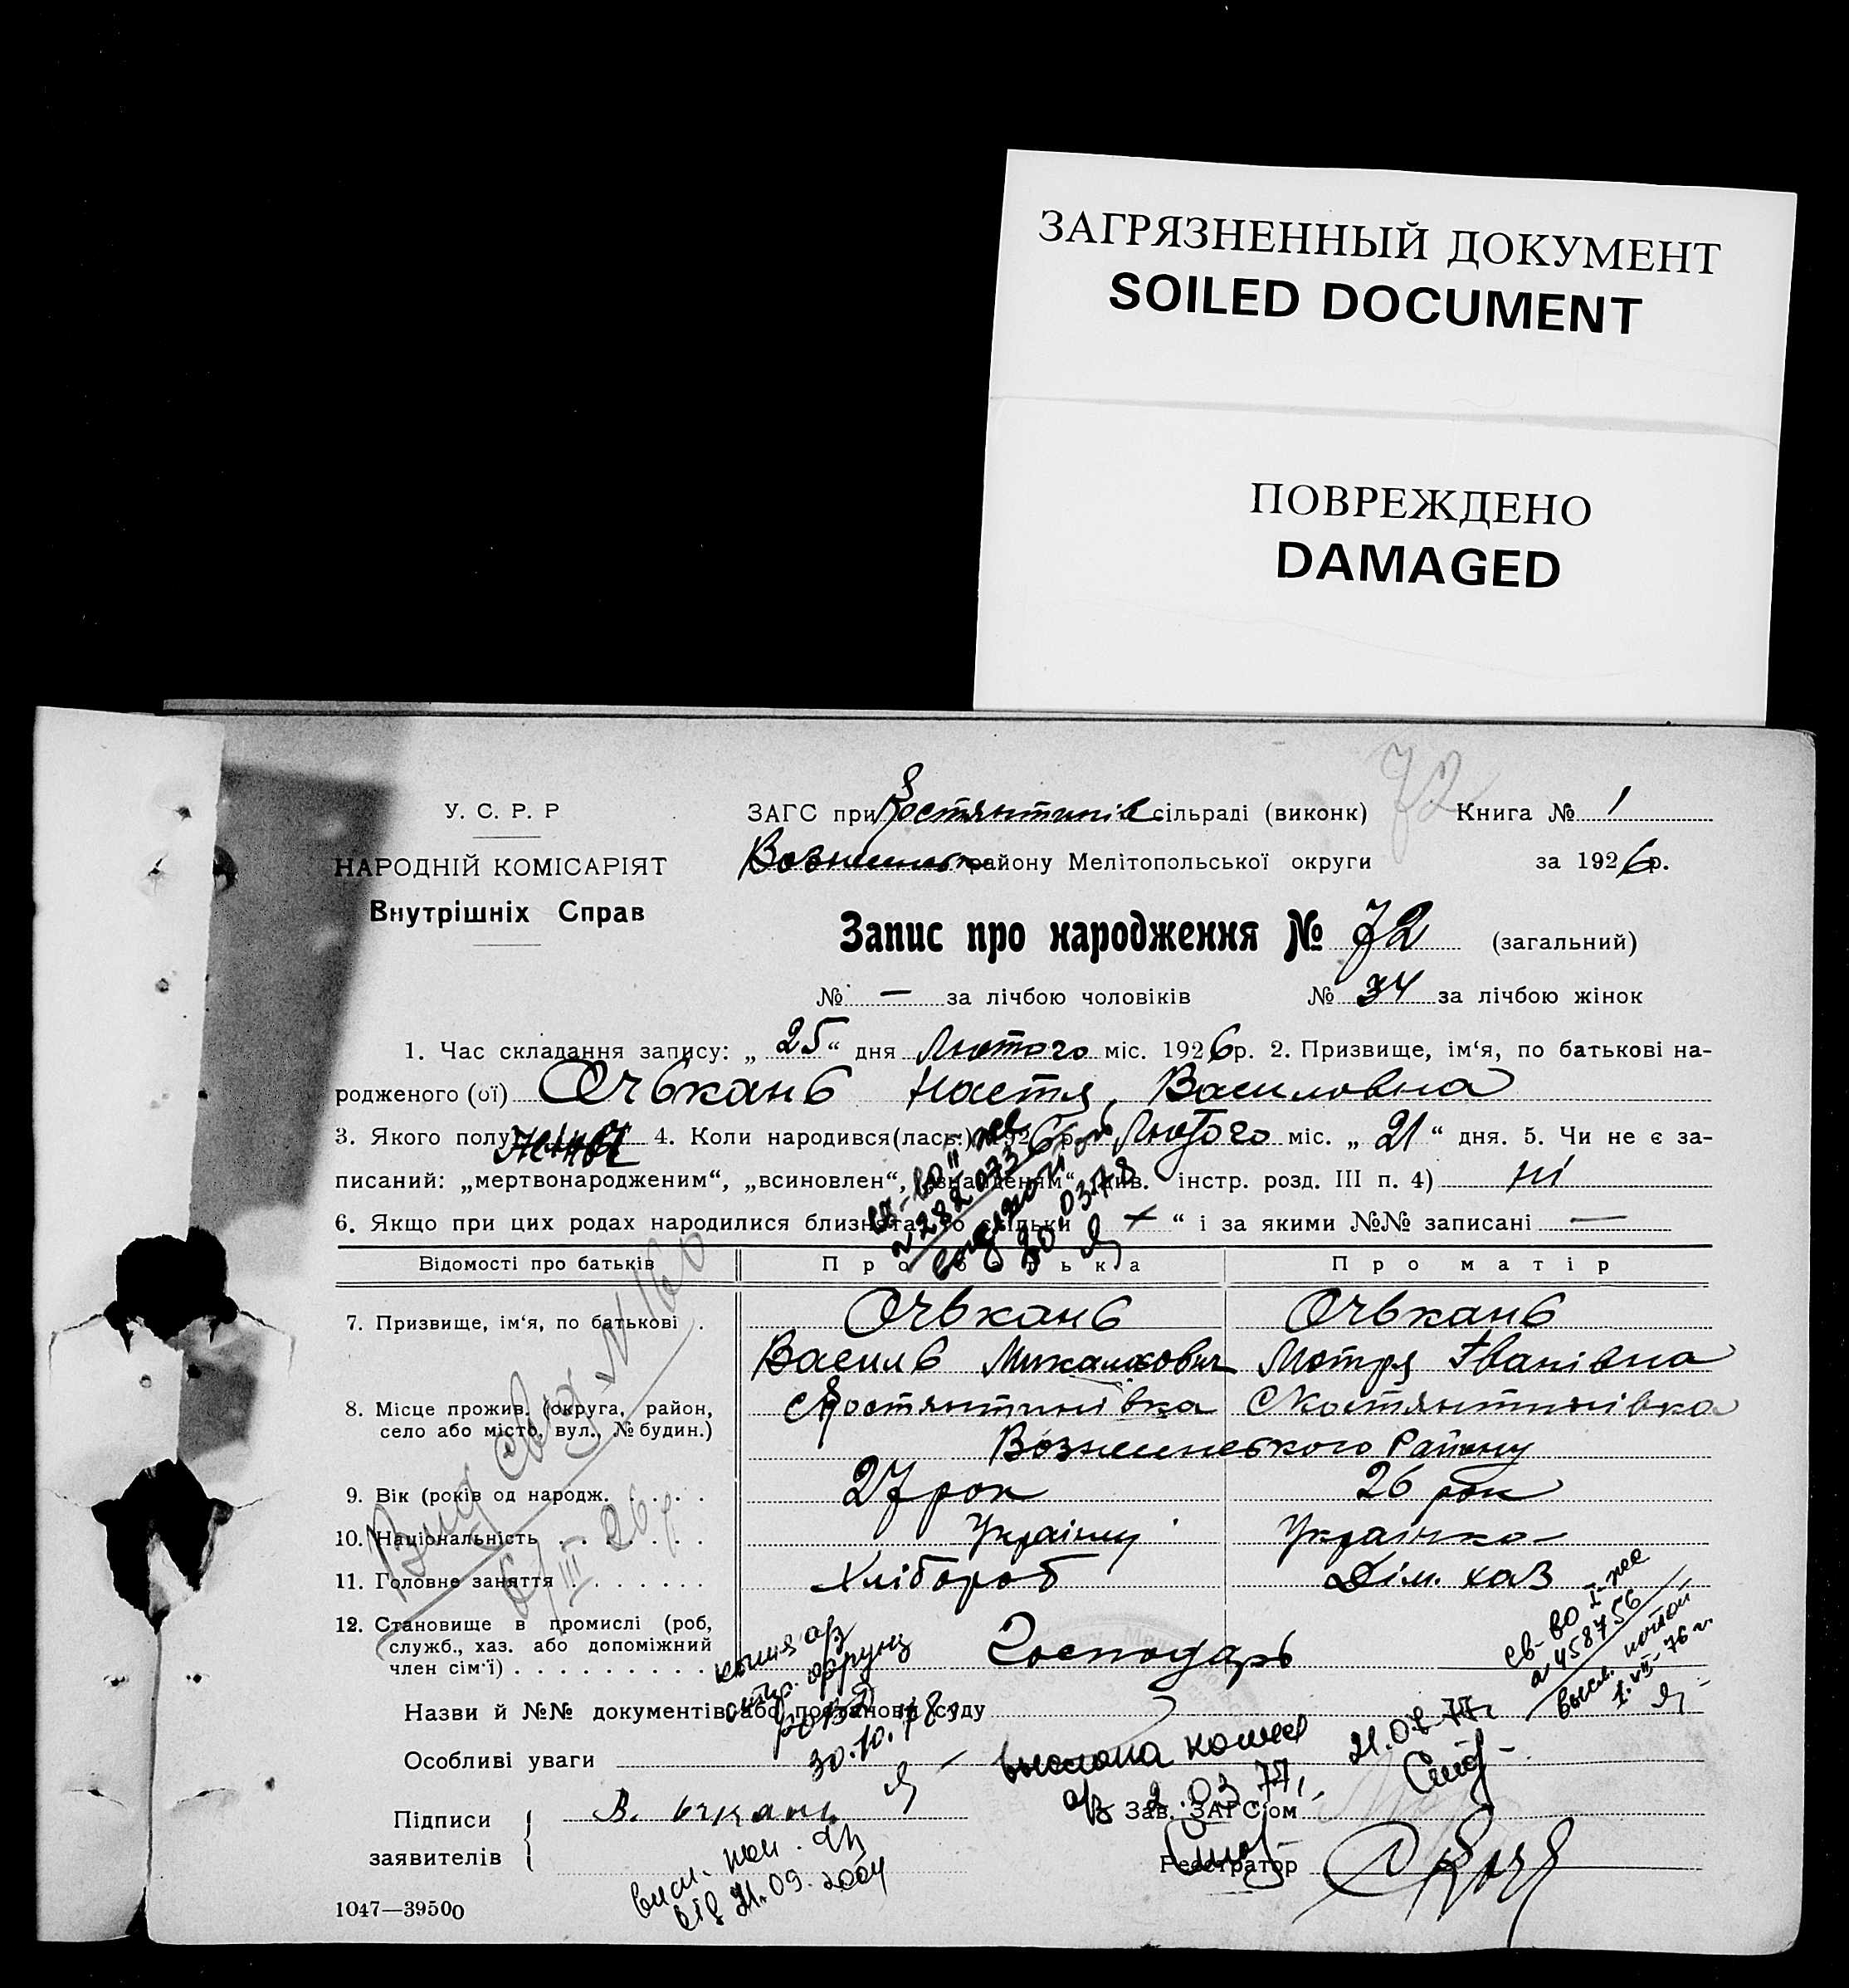 ЗАГРЯЗНЕННЫЙ ДОКУМЕНТ
SOILED DOCUMENT
ПОВРЕЖДЕНО
DAMAGED
72
У. С. Р. Р
НАРОДНІЙ КОМІСАРІЯТ
Внутрішніх Справ
ЗАГС при Костянтинів сільраді (виконк) Книга № 1
району Мелітопольської округи за 1926 р.
Запис про народження № 72 (загальний)
№ — за лічбою чоловіків № 34 за лічбою жінок
1. Час складання запису: „ 25 “ дня Лютого міс. 1926 р. 2. Призвище, ім‘я, по батькові на-
родженого (ої) Очькань Настя, Василовна
3. Якого полу 4. Коли народився(лась:) 1926 р. Лютого міс. „ 21 “ дня. 5. Чи не є за-
писаний: „мертвонародженим“, „всиновлен“, „знайденям“ див. інстр. розд. III п. 4) ні
6. Якщо при цих родах народилися близнята то скільки + “ і за якими №№ записані —
св-во II
282073
30.03.78
Відомості про батьків Про батька Про матір
7. Призвище, ім‘я, по батькові . Очькань Очькань
Василь Мотря Іванівна
8. Місце прожив. (округа, район, село або місто, вул., № будин.) Костянтинівка С Костянтинівка
Району
9. Вік (років од народж. . . . . 27 рок 26 рок
10. Національність . . . . . . . Українка
11. Головне заняття . . . . . . . Хлібороб Дім. хаз
12. Становище в промислі (роб,
служб., хаз. або допоміжний
член сім‘ї) . . . . . . . . . . Господарь
Вид свид N 160
6/III 26 р
св-во I-
458756
76 г.
Назви й №№ документів або постанови суду
30.10.78
Особливі уваги
выслана копия 21.02.77г
2.03.77г
Підписи
заявителів
В. Очкань
Зав. ЗАГС‘ом
Реєстратор
21.09.2004
1047—39500